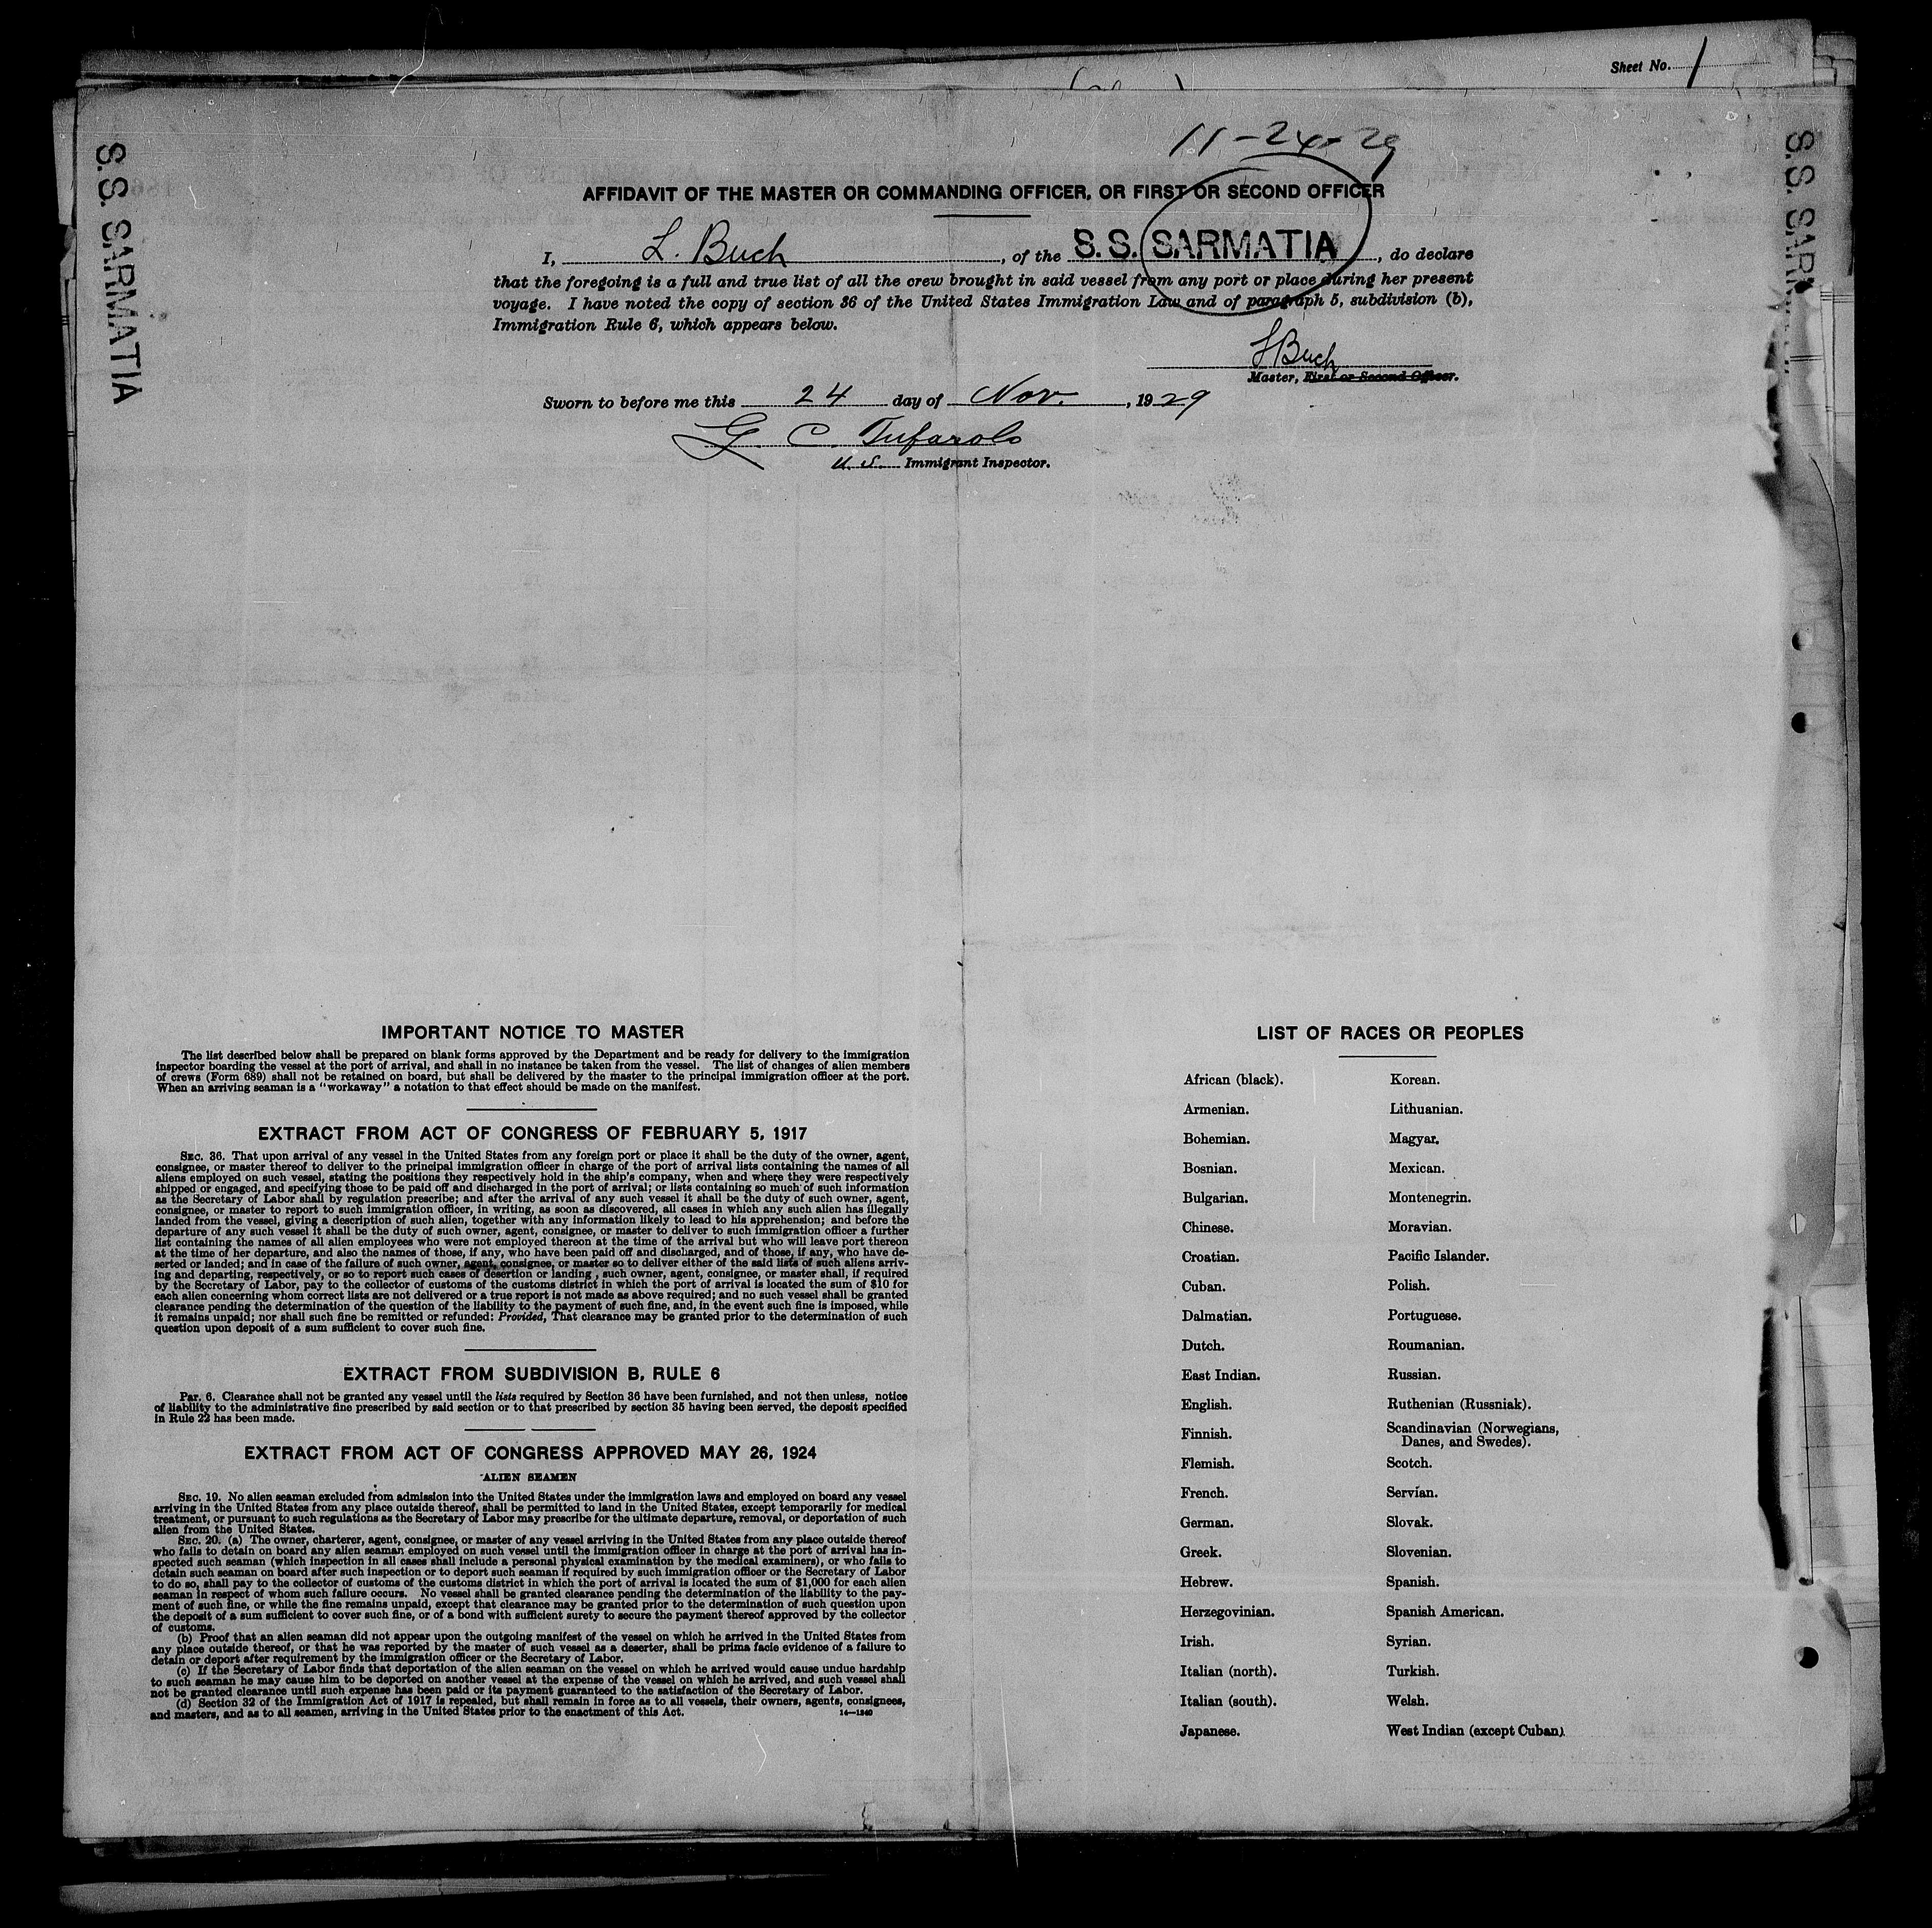 Sheet No. 1
11-24-29
S.S. SARMATIA
S.S. SARM
AFFIDAVIT OF THE MASTER OR COMMANDING OFFICER, OR FIRST OR SECOND OFFICER
I, L. Buch, of the S.S. SARMATIA, do declare
that the foregoing is a full and true list of all the crew brought in said vessel from any port or place during her present
voyage. I have noted the copy of section 36 of the United States Immigration Law and of paragraph 5, subdivision (b),
Immigration Rule 6, which appears below.
L Buch
Master, First or Second Officer.
Sworn to before me this 24 day of Nov., 1929
G. C. Tufarolo
U.S. Immigrant Inspector.
IMPORTANT NOTICE TO MASTER
The list described below shall be prepared on blank forms approved by the Department and be ready for delivery to the immigration
inspector boarding the vessel at the port of arrival, and shall in no instance be taken from the vessel. The list of changes of alien members
of crews (Form 689) shall not be retained on board, but shall be delivered by the master to the principal immigration officer at the port.
When an arriving seaman is a "workaway" a notation to that effect should be made on the manifest.
EXTRACT FROM ACT OF CONGRESS OF FEBRUARY 5, 1917
SEC. 36. That upon arrival of any vessel in the United States from any foreign port or place it shall be the duty of the owner, agent,
consignee, or master thereof to deliver to the principal immigration officer in charge of the port of arrival lists containing the names of all
aliens employed on such vessel, stating the positions they respectively hold in the ship's company, when and where they were respectively
shipped or engaged, and specifying those to be paid off and discharged in the port of arrival; or lists containing so much of such information
as the Secretary of Labor shall by regulation prescribe; and after the arrival of any such vessel it shall be the duty of such owner, agent,
consignee, or master to report to such immigration officer, in writing, as soon as discovered, all cases in which any such alien has illegally
landed from the vessel, giving a description of such alien, together with any information likely to lead to his apprehension; and before the
departure of any such vessel it shall be the duty of such owner, agent, consignee, or master to deliver to such immigration officer a further
list containing the names of all alien employees who were not employed thereon at the time of the arrival but who will leave port thereon
at the time of her departure, and also the names of those, if any, who have been paid off and discharged, and of those, if any, who have de-
serted or landed; and in case of the failure of such owner, agent, consignee, or master so to deliver either of the said lists of such aliens arriv-
ing and departing, respectively, or so to report such cases of desertion or landing, such owner, agent, consignee, or master shall, if required
by the Secretary of Labor, pay to the collector of customs of the customs district in which the port of arrival is located the sum of $10 for
each alien concerning whom correct lists are not delivered or a true report is not made as above required; and no such vessel shall be granted
clearance pending the determination of the question of the liability to the payment of such fine, and, in the event such fine is imposed, while
it remains unpaid; nor shall such fine be remitted or refunded: Provided, That clearance may be granted prior to the determination of such
question upon deposit of a sum sufficient to cover such fine.
EXTRACT FROM SUBDIVISION B, RULE 6
Par. 6. Clearance shall not be granted any vessel until the lists required by Section 36 have been furnished, and not then unless, notice
of liability to the administrative fine prescribed by said section or to that prescribed by section 35 having been served, the deposit specified
in Rule 22 has been made.
EXTRACT FROM ACT OF CONGRESS APPROVED MAY 26, 1924
ALIEN SEAMEN
SEC. 19. No alien seaman excluded from admission into the United States under the immigration laws and employed on board any vessel
arriving in the United States from any place outside thereof, shall be permitted to land in the United States, except temporarily for medical
treatment, or pursuant to such regulations as the Secretary of Labor may prescribe for the ultimate departure, removal, or deportation of such
alien from the United States.
SEC. 20. (a) The owner, charterer, agent, consignee, or master of any vessel arriving in the United States from any place outside thereof
who fails to detain on board any alien seaman employed on such vessel until the immigration officer in charge at the port of arrival has in-
spected such seaman (which inspection in all cases shall include a personal physical examination by the medical examiners), or who fails to
detain such seaman on board after such inspection or to deport such seaman if required by such immigration officer or the Secretary of Labor
to do so, shall pay to the collector of customs of the customs district in which the port of arrival is located the sum of $1,000 for each alien
seaman in respect of whom such failure occurs. No vessel shall be granted clearance pending the determination of the liability to the pay-
ment of such fine, or while the fine remains unpaid, except that clearance may be granted prior to the determination of such question upon
the deposit of a sum sufficient to cover such fine, or of a bond with sufficient surety to secure the payment thereof approved by the collector
of customs.
(b) Proof that an alien seaman did not appear upon the outgoing manifest of the vessel on which he arrived in the United States from
any place outside thereof, or that he was reported by the master of such vessel as a deserter, shall be prima facie evidence of a failure to
detain or deport after requirement by the immigration officer or the Secretary of Labor.
(c) If the Secretary of Labor finds that deportation of the alien seaman on the vessel on which he arrived would cause undue hardship
to such seaman he may cause him to be deported on another vessel at the expense of the vessel on which he arrived, and such vessel shall
not be granted clearance until such expense has been paid or its payment guaranteed to the satisfaction of the Secretary of Labor.
(d) Section 32 of the Immigration Act of 1917 is repealed, but shall remain in force as to all vessels, their owners, agents, consignees,
and masters, and as to all seamen, arriving in the United States prior to the enactment of this Act. 14—1240
LIST OF RACES OR PEOPLES
African (black). Korean.
Armenian. Lithuanian.
Bohemian. Magyar.
Bosnian. Mexican.
Bulgarian. Montenegrin.
Chinese. Moravian.
Croatian. Pacific Islander.
Cuban. Polish.
Dalmatian. Portuguese.
Dutch. Roumanian.
East Indian. Russian.
English. Ruthenian (Russniak).
Finnish. Scandinavian (Norwegians,
Danes, and Swedes).
Flemish. Scotch.
French. Servian.
German. Slovak.
Greek. Slovenian.
Hebrew. Spanish.
Herzegovinian. Spanish American.
Irish. Syrian.
Italian (north). Turkish.
Italian (south). Welsh.
Japanese. West Indian (except Cuban)